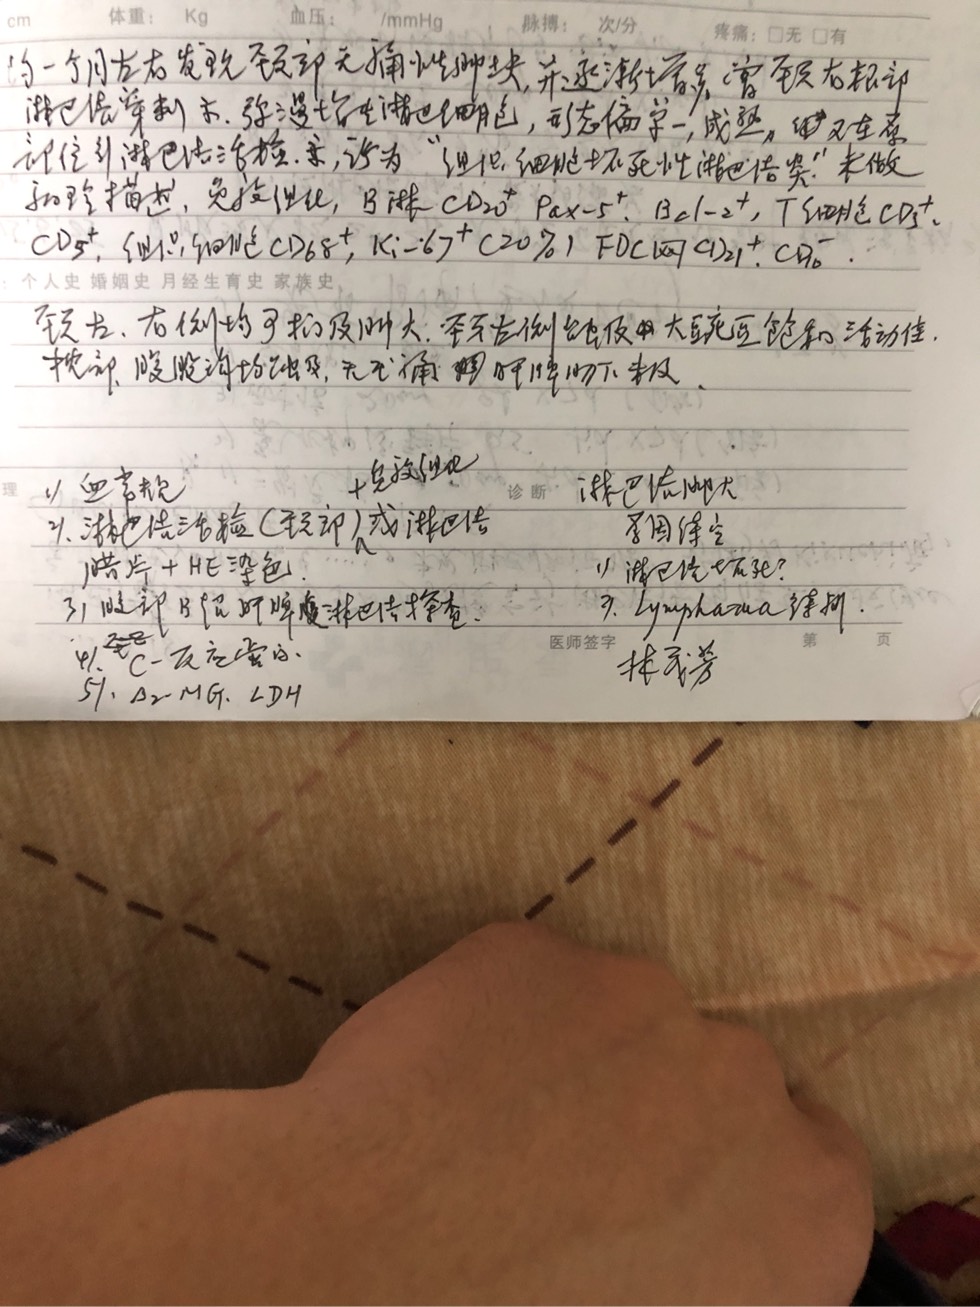 cm 体重： Kg 血压： /mmHg 脉搏： 次/分 疼痛：□无 □有
约一个月左右发现颈部无痛性肿块，并逐渐增多，曾颈右根部
淋巴结穿刺示，弥漫增生淋巴细胞，形态偏单一，成熟，又在原
部位行淋巴结活检，示，诊为"组织细胞坏死性淋巴结炎"未做
病理描述，免疫组化，B淋CD20⁺ Pax-5⁺、Bcl-2⁺，T细胞CD3⁺、
CD5⁺，组织细胞CD68⁺，Ki-67⁺(20%) FDC网CD21⁺、CD10⁻.
个人史 婚姻史 月经生育史 家族史
颈左、右侧均可扪及肿大，左侧触及大豌豆 活动佳.
枕部、腹股沟均触及，无压痛 肝脾肋下未及.
理 1) 血常规 +免疫组化 诊断 淋巴结肿大
2). 淋巴结活检(颈部) 或淋巴结 原因待定
腊片+HE染色. 1) 淋巴结坏死?
3) 腹部B超 肝脾 淋巴结探查. 2. Lymphoma 待排.
4). C-反应蛋白. 医师签字 第 页
5). β2-MG. LDH 林茂芳